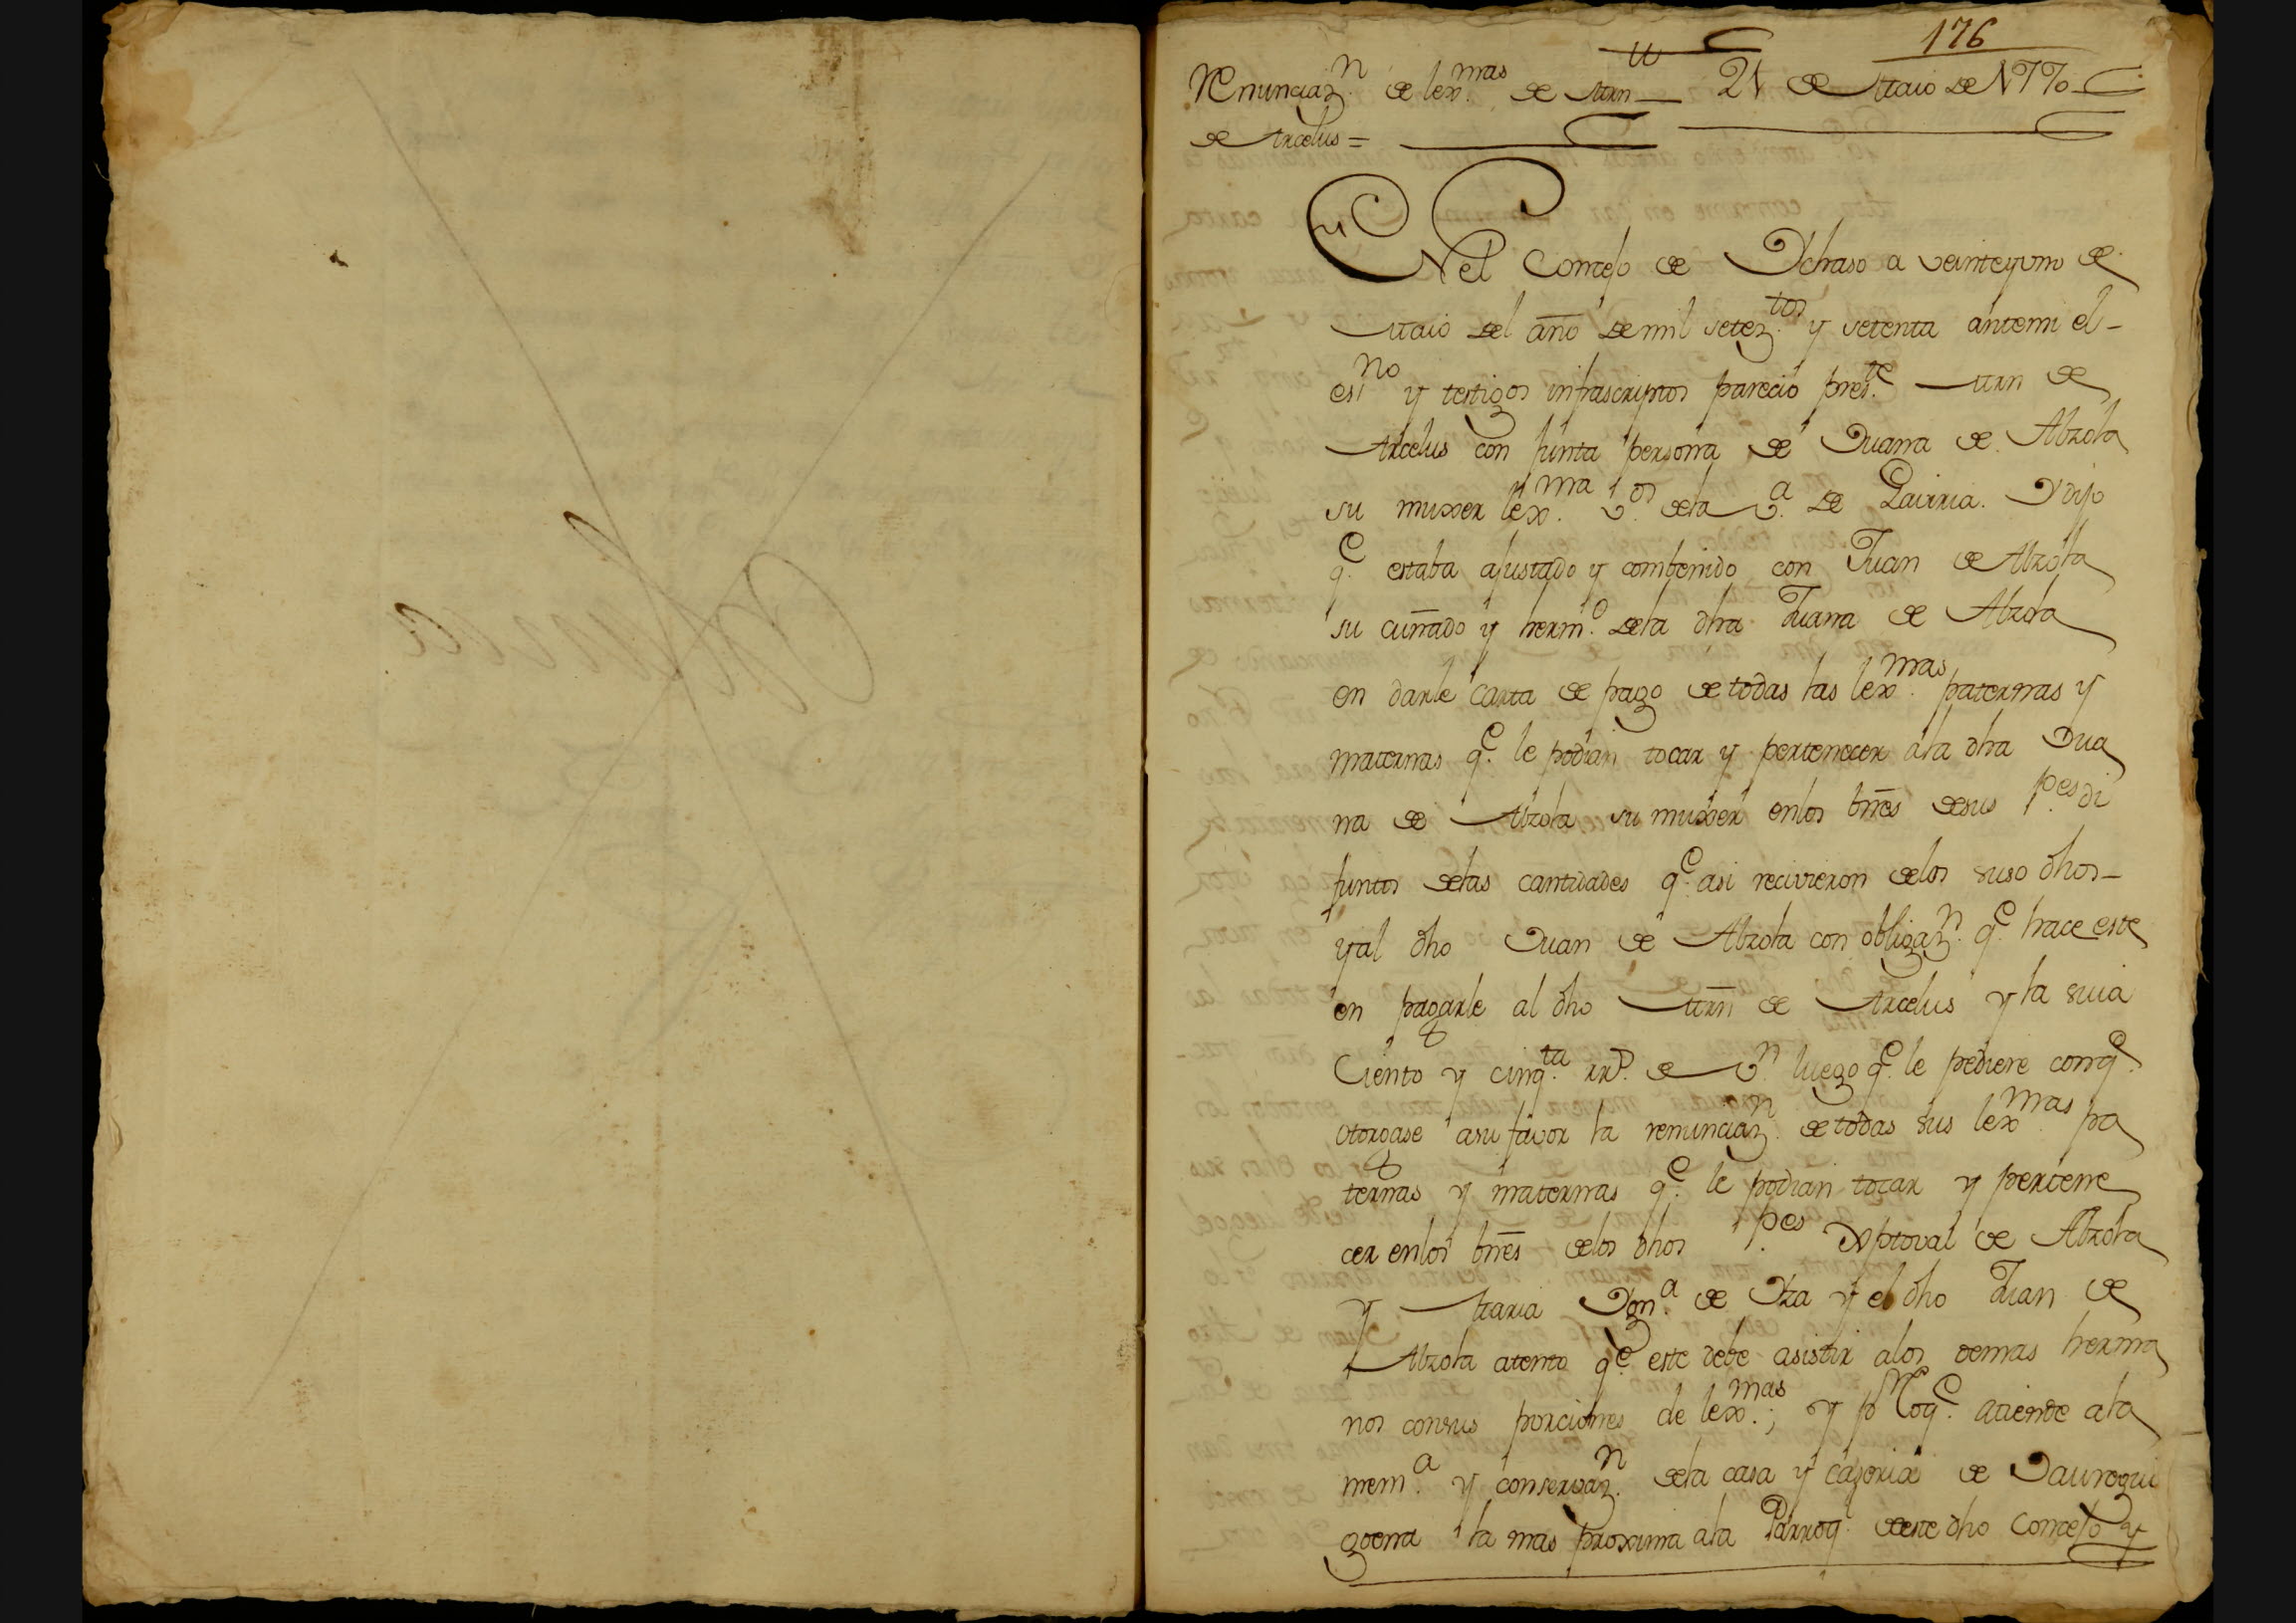 176
Renunciaz.n de lex.mas de Mrn 21 de Maio de 1770
de Arcelus =
En el Concejo de Ychaso a veinteyuno de
Maio del año de mil setez.tos y setenta antemi el
essno y testigos infrascriptos pareció pres.te Mrn de
Arcelus con junta persona de Juana de Alzola
su muxer lex.ma v.os dela v.a de Gaviria. Y dijo
q.e estaba ajustado y combenido con Juan de Alzola
su cuñado y herm.o dela dha Juana de Alzola
en darle carta de pago de todas las lex.mas paternas y
maternas q.e le podian tocar y pertenecer ala dha Jua
na de Alzola su muxer enlos bnes desus p.es di
funtos delas cantidades q.e asi recivieron delos suso dhos
yal dho Juan de Alzola con obligaz.n q.e hace este
en pagarle al dho Mrn de Arcelus y la suia
Ciento y cinq.ta rr.s de v.n luego q.e le pediere conq.e
otorgase asu favor la renunciaz.n de todas sus lex.mas pa
ternas y maternas q.e le podian tocar y pertene
cer enlos bnes delos dhos p.es Xptoval de Alzola
y Maria Ygn.a de Yza y el dho Juan de
Alzola atento q.e este debe asistir alos demas herma
nos consus porciones de lex.mas; y p.r loq.e atiende ala
mem.a y conservaz.n dela casa y caseria de Jauregui
goena la mas proxima ala Parroq. deste dho Concejo y